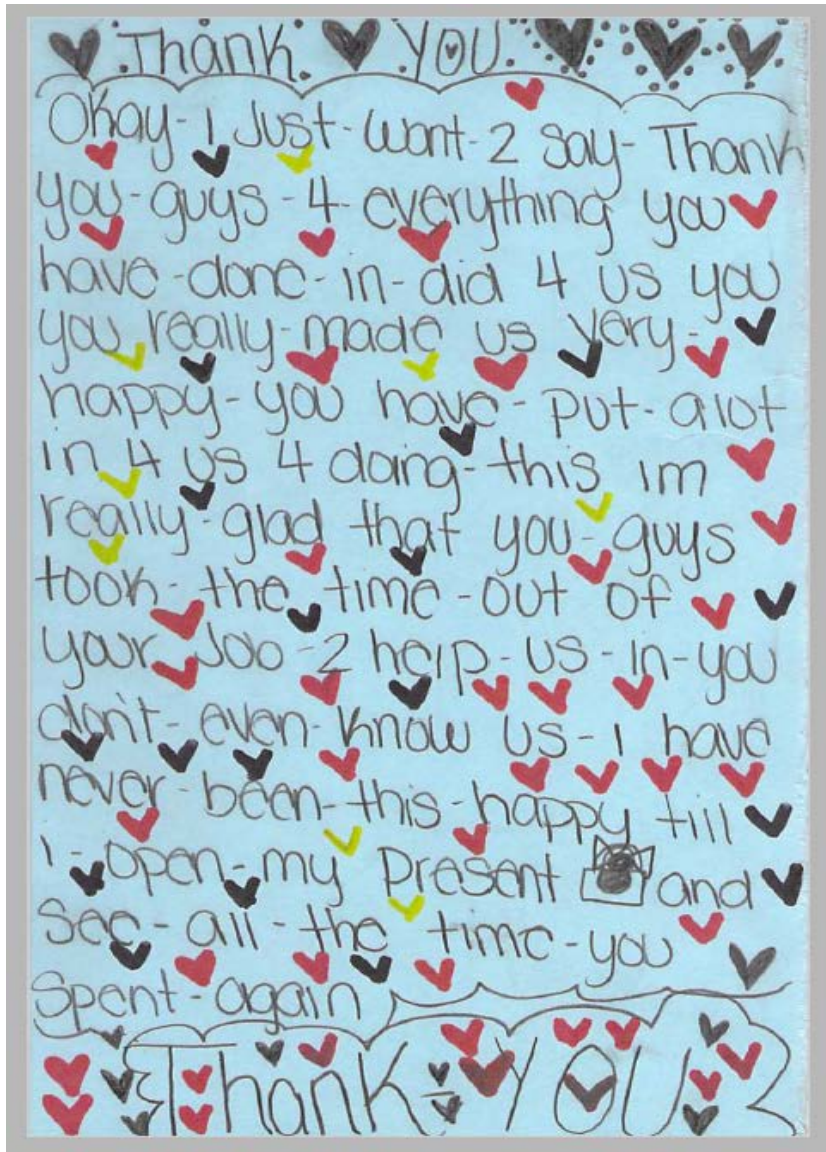 Thank YOU
Okay-I Just-want-2 say-Thank
you-guys-4 everything you
have-done-in-did 4 us you
you really-made us very-
happy-you have-put-alot
in 4 us 4 doing-this im
really-glad that you-guys
took-the time-out of
your Job-2 help-us-in-you
don't-even-know us-I have
never-been-this-happy till
I-open-my present and
see-all-the time-you
spent-again
Thank-YOU